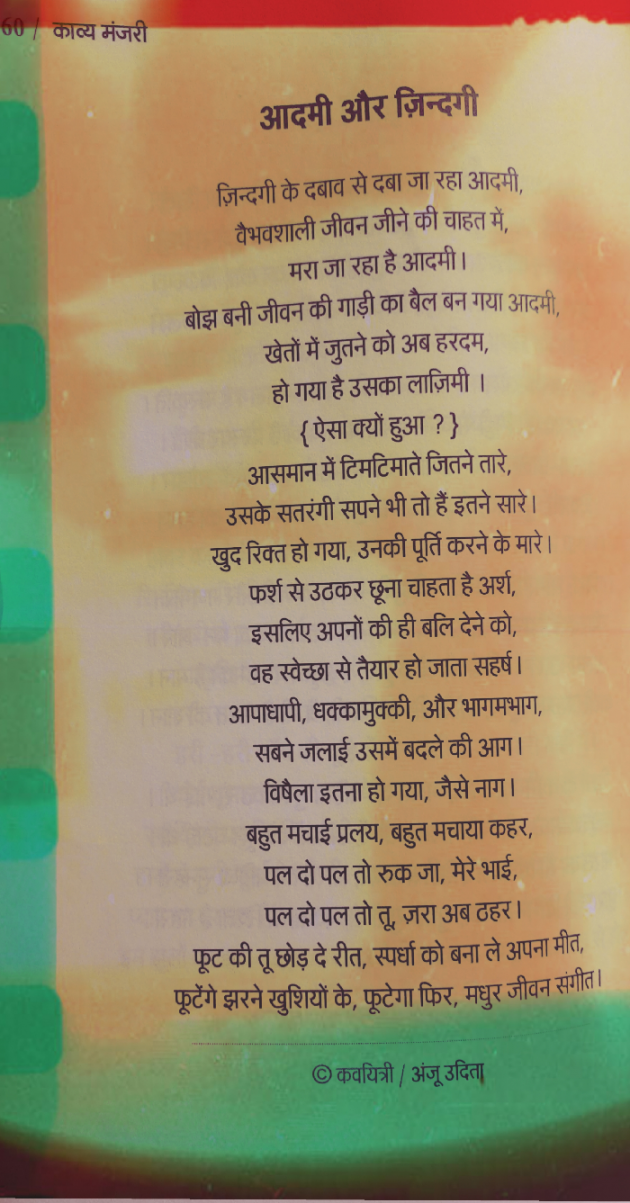 60 / काव्य मंजरी
आदमी और ज़िन्दगी
ज़िन्दगी के दबाव से दबा जा रहा आदमी,
वैभवशाली जीवन जीने की चाहत में,
मरा जा रहा है आदमी।
बोझ बनी जीवन की गाड़ी का बैल बन गया आदमी,
खेतों में जुतने को अब हरदम,
हो गया है उसका लाज़िमी ।
{ ऐसा क्यों हुआ ? }
आसमान में टिमटिमाते जितने तारे,
उसके सतरंगी सपने भी तो हैं इतने सारे।
खुद रिक्त हो गया, उनकी पूर्ति करने के मारे।
फर्श से उठकर छूना चाहता है अर्श,
इसलिए अपनों की ही बलि देने को,
वह स्वेच्छा से तैयार हो जाता सहर्ष।
आपाधापी, धक्कामुक्की, और भागमभाग,
सबने जलाई उसमें बदले की आग।
विषैला इतना हो गया, जैसे नाग।
बहुत मचाई प्रलय, बहुत मचाया कहर,
पल दो पल तो रुक जा, मेरे भाई,
पल दो पल तो तू, ज़रा अब ठहर।
फूट की तू छोड़ दे रीत, स्पर्धा को बना ले अपना मीत,
फूटेंगे झरने खुशियों के, फूटेगा फिर, मधुर जीवन संगीत।
© कवयित्री / अंजू उदिता